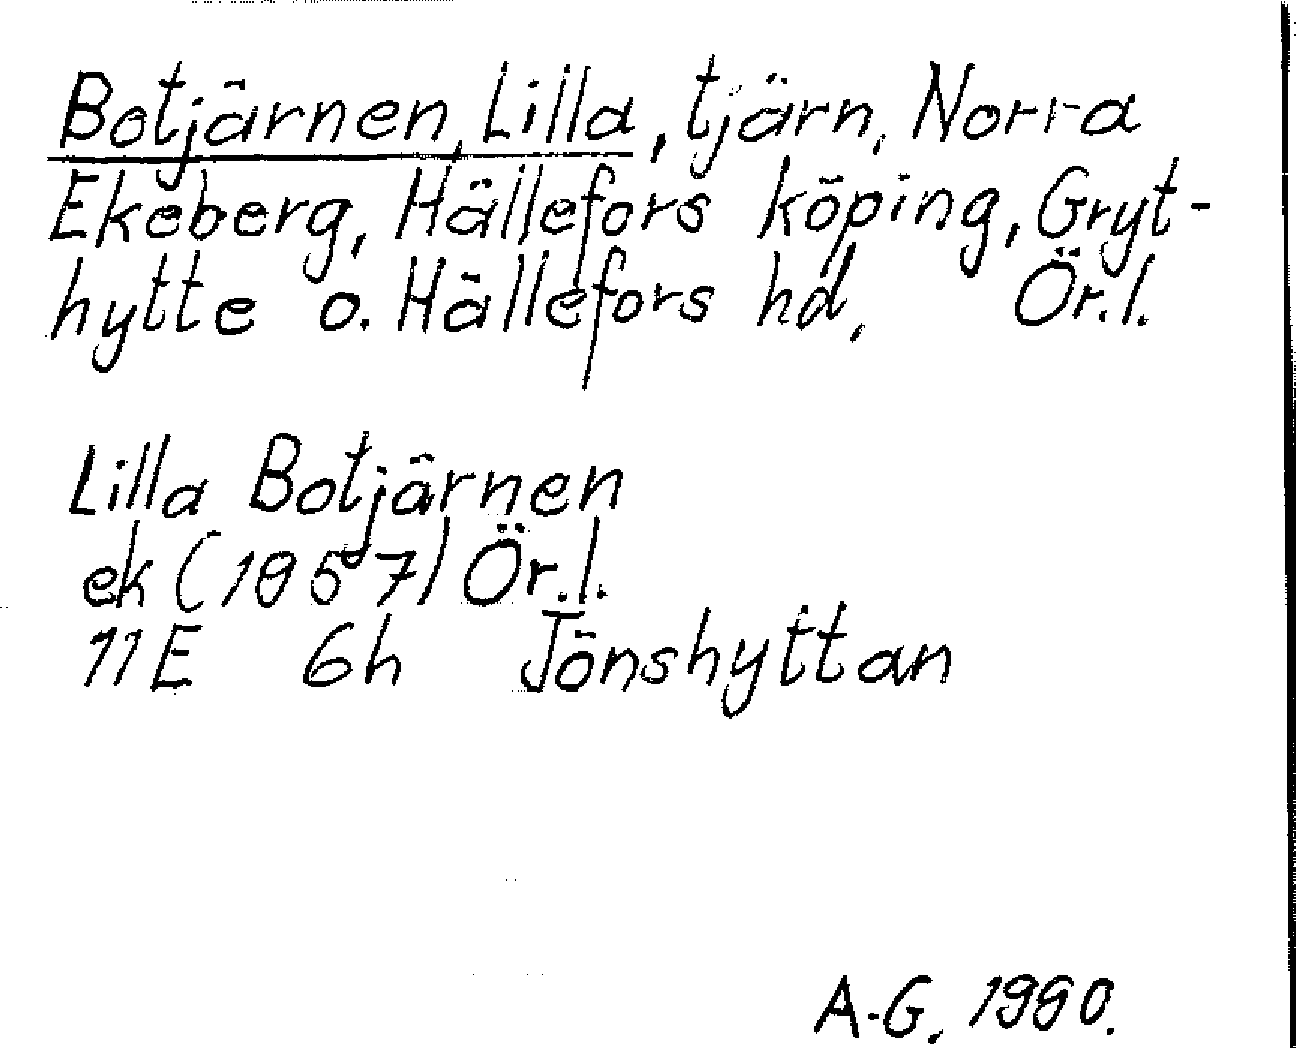 Botjärnen, Lilla, tjärn, Norra
Ekeberg, Hällefors köping, Gryt-
hytte o. Hällefors hd, Ör.l.
Lilla Botjärnen
ek (1957) Ör.l.
11E 6h Jönshyttan
A-G, 1980.